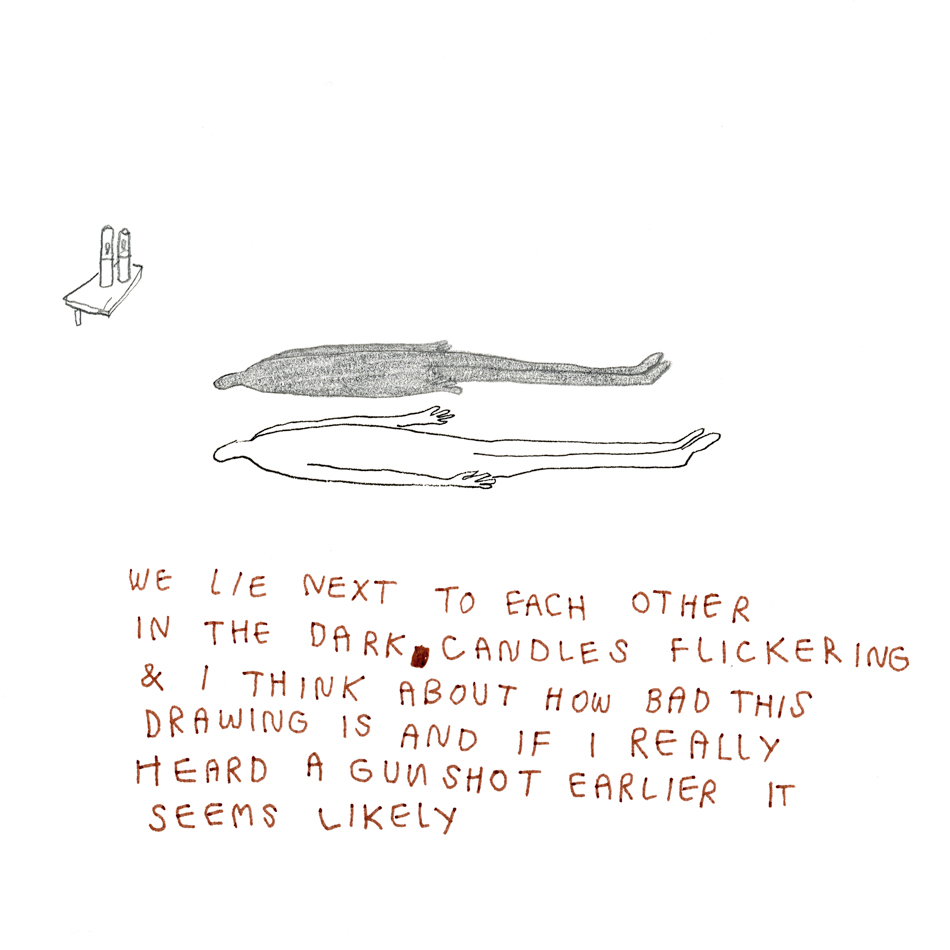 WE LIE NEXT TO EACH OTHER
IN THE DARK. CANDLES FLICKERING
& I THINK ABOUT HOW BAD THIS
DRAWING IS AND IF I REALLY
HEARD A GUNSHOT EARLIER IT
SEEMS LIKELY